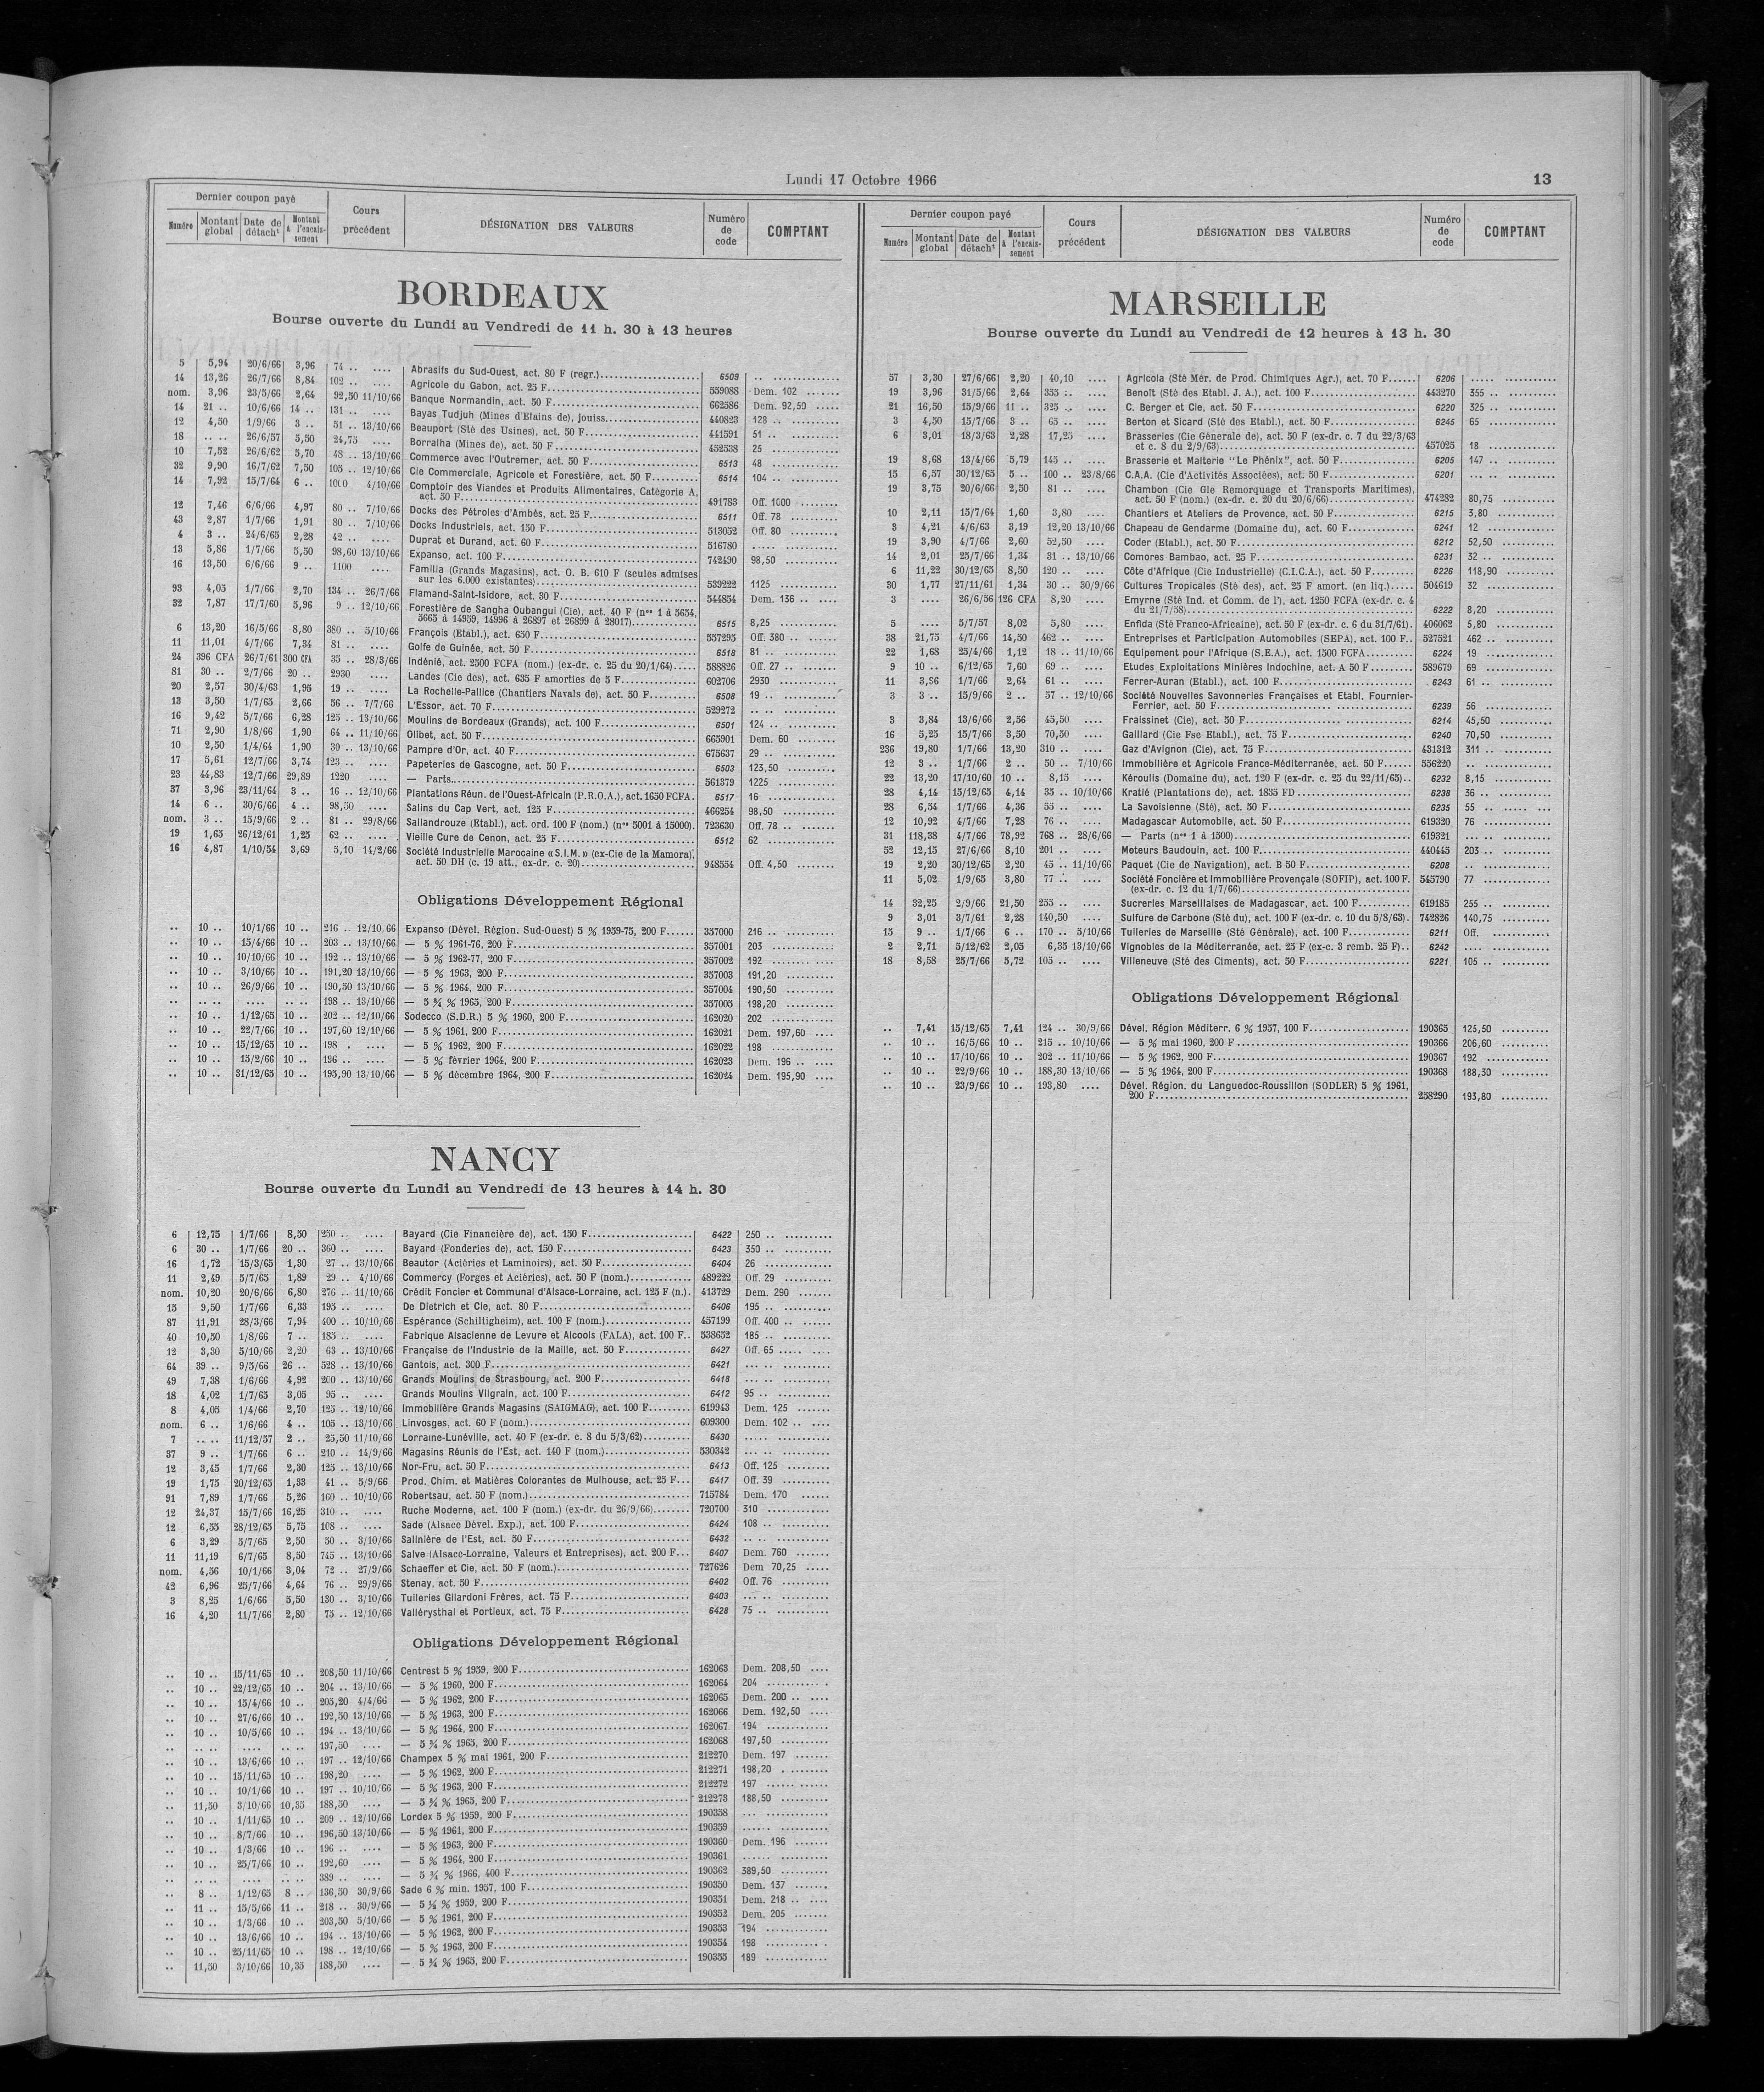 Lundi 17 Octobre 1966
13
Dernier coupon payé
Numéro | Montant global | Date de détacht | Montant à l'encaissement | Cours précédent | DÉSIGNATION DES VALEURS | Numéro de code | COMPTANT
BORDEAUX
Bourse ouverte du Lundi au Vendredi de 11 h. 30 à 13 heures
5 5,94 20/6/66 3,96 74 .. .... Abrasifs du Sud-Ouest, act. 80 F (regr.) 6509 .. ....
14 13,26 26/7/66 8,84 102 .. .... Agricole du Gabon, act. 25 F 559088 Dem. 102
nom. 3,96 23/5/66 2,64 92,50 11/10/66 Banque Normandin, act. 50 F 662586 Dem. 92,50
14 21 .. 10/6/66 14 .. 131 .. .... Bayas Tudjuh (Mines d'Etains de), jouiss. 440823 128 ..
12 4,50 1/9/66 3 .. 51 .. 13/10/66 Beauport (Sté des Usines), act. 50 F 441591 51 ..
18 .. .. 26/6/57 5,50 24,75 .... Borralha (Mines de), act. 50 F 452538 25
10 7,52 26/6/62 5,70 48 .. 13/10/66 Commerce avec l'Outremer, act. 50 F 6513 48
32 9,90 16/7/62 7,50 105 .. 12/10/66 Cie Commerciale, Agricole et Forestière, act. 50 F 6514 104 ..
14 7,92 15/7/64 6 .. 1000 4/10/66 Comptoir des Viandes et Produits Alimentaires, Catégorie A,
act. 50 F 491783 Off. 1000
12 7,46 6/6/66 4,97 80 .. 7/10/66 Docks des Pétroles d'Ambès, act. 25 F 6511 Off. 78
43 2,87 1/7/66 1,91 80 .. 7/10/66 Docks Industriels, act. 150 F 513052 Off. 80
4 3 .. 24/6/65 2,28 42 .. .... Duprat et Durand, act. 60 F 516780 .....
13 5,86 1/7/66 5,50 98,60 13/10/66 Expanso, act. 100 F 742490 98,50
16 13,50 6/6/66 9 .. 1100 .... Familia (Grands Magasins), act. O. B. 610 F (seules admises
sur les 6.000 existantes) 539222 1125
93 4,05 1/7/66 2,70 134 .. 26/7/66 Flamand-Saint-Isidore, act. 30 F 544854 Dem. 136 ..
32 7,87 17/7/60 5,96 9 .. 12/10/66 Forestière de Sangha Oubangui (Cie), act. 40 F (nos 1 à 5654,
5665 à 14959, 14996 à 26897 et 26899 à 28017) 6515 8,25
6 13,20 16/5/66 8,80 380 .. 5/10/66 François (Etabl.), act. 650 F 557295 Off. 380 ..
11 11,01 4/7/66 7,34 81 .. .... Golfe de Guinée, act. 50 F 6518 81 ..
24 396 CFA 26/7/61 300 CFA 35 .. 28/3/66 Indénié, act. 2500 FCFA (nom.) (ex-dr. c. 25 du 20/1/64) 588826 Off. 27 ..
81 30 .. 2/7/66 20 .. 2930 .... Landes (Cie des), act. 635 F amorties de 5 F 602706 2930
20 2,57 30/4/63 1,95 19 .. .... La Rochelle-Pallice (Chantiers Navals de), act. 50 F 6508 19 ..
13 3,50 1/7/65 2,66 56 .. 7/7/66 L'Essor, act. 70 F 529272 .. ..
16 9,42 5/7/66 6,28 125 .. 13/10/66 Moulins de Bordeaux (Grands), act. 100 F 6501 124 ..
71 2,90 1/8/66 1,90 64 .. 11/10/66 Olibet, act. 50 F 665901 Dem. 60
10 2,50 1/4/64 1,90 30 .. 13/10/66 Pampre d'Or, act. 40 F 675637 29 ..
17 5,61 12/7/66 3,74 123 .. .... Papeteries de Gascogne, act. 50 F 6503 123,50
23 44,83 12/7/66 29,89 1220 .... — Parts 561379 1225
37 3,96 23/11/64 3 .. 16 .. 12/10/66 Plantations Réun. de l'Ouest-Africain (P.R.O.A.), act. 1650 FCFA. 6517 16
14 6 .. 30/6/66 4 .. 98,50 .... Salins du Cap Vert, act. 125 F 466254 98,50
nom. 3 .. 15/9/66 2 .. 81 .. 29/8/66 Sallandrouze (Etabl.), act. ord. 100 F (nom.) (nos 5001 à 15000). 723630 Off. 78 ..
19 1,65 26/12/61 1,25 62 .. .... Vieille Cure de Cenon, act. 25 F 6512 62
16 4,87 1/10/54 3,69 5,10 14/2/66 Société Industrielle Marocaine «S.I.M.» (ex-Cie de la Mamora),
act. 50 DH (c. 19 att., ex-dr. c. 20) 948554 Off. 4,50
Obligations Développement Régional
.. 10 .. 10/1/66 10 .. 216 .. 12/10/66 Expanso (Dével. Région. Sud-Ouest) 5 % 1959-75, 200 F 357000 216 ..
.. 10 .. 15/4/66 10 .. 203 .. 13/10/66 — 5 % 1961-76, 200 F 357001 203
.. 10 .. 10/10/66 10 .. 192 .. 13/10/66 — 5 % 1962-77, 200 F 357002 192
.. 10 .. 3/10/66 10 .. 191,20 13/10/66 — 5 % 1963, 200 F 357003 191,20
.. 10 .. 26/9/66 10 .. 190,50 13/10/66 — 5 % 1964, 200 F 357004 190,50
.. .. .. .... .. .. 198 .. 13/10/66 — 5 ¾ % 1965, 200 F 357005 198,20
.. 10 .. 1/12/65 10 .. 202 .. 12/10/66 Sodecco (S.D.R.) 5 % 1960, 200 F 162020 202
.. 10 .. 22/7/66 10 .. 197,60 12/10/66 — 5 % 1961, 200 F 162021 Dem. 197,60
.. 10 .. 15/12/65 10 .. 198 . .... — 5 % 1962, 200 F 162022 198
.. 10 .. 15/2/66 10 .. 196 .. .... — 5 % février 1964, 200 F 162023 Dem. 196 ..
.. 10 .. 31/12/65 10 .. 195,90 13/10/66 — 5 % décembre 1964, 200 F 162024 Dem. 195,90
NANCY
Bourse ouverte du Lundi au Vendredi de 13 heures à 14 h. 30
6 12,75 1/7/66 8,50 250 .. .... Bayard (Cie Financière de), act. 150 F 6422 250 ..
6 30 .. 1/7/66 20 .. 360 .. .... Bayard (Fonderies de), act. 150 F 6423 350 ..
16 1,72 15/3/65 1,30 27 .. 13/10/66 Beautor (Aciéries et Laminoirs), act. 50 F 6404 26
11 2,49 5/7/65 1,89 29 .. 4/10/66 Commercy (Forges et Aciéries), act. 50 F (nom.) 489222 Off. 29
nom. 10,20 20/6/66 6,80 276 .. 11/10/66 Crédit Foncier et Communal d'Alsace-Lorraine, act. 125 F (n.). 413729 Dem. 290
15 9,50 1/7/66 6,33 195 .. .... De Dietrich et Cie, act. 80 F 6406 195 ..
87 11,91 28/3/66 7,94 400 .. 10/10/66 Espérance (Schiltigheim), act. 100 F (nom.) 457199 Off. 400 ..
40 10,50 1/8/66 7 .. 185 .. .... Fabrique Alsacienne de Levure et Alcools (FALA), act. 100 F.. 538652 185 ..
12 3,30 5/10/66 2,20 63 .. 13/10/66 Française de l'Industrie de la Maille, act. 50 F 6427 Off. 65
64 39 .. 9/5/66 26 .. 528 .. 13/10/66 Gantois, act. 300 F 6421 ... ..
49 7,38 1/6/66 4,92 200 .. 13/10/66 Grands Moulins de Strasbourg, act. 200 F 6418 ... ..
18 4,02 1/7/65 3,05 95 .. .... Grands Moulins Vilgrain, act. 100 F 6412 95 ..
8 4,05 1/4/66 2,70 125 .. 12/10/66 Immobilière Grands Magasins (SAIGMAG), act. 100 F 619943 Dem. 125
nom. 6 .. 1/6/66 4 .. 105 .. 13/10/66 Linvosges, act. 60 F (nom.) 609300 Dem. 102 ..
7 .. .. 11/12/57 2 .. 25,50 11/10/66 Lorraine-Lunéville, act. 40 F (ex-dr. c. 8 du 5/3/62) 6430 .....
37 9 .. 1/7/66 6 .. 210 .. 14/9/66 Magasins Réunis de l'Est, act. 140 F (nom.) 530342 ... ..
12 3,45 1/7/66 2,30 125 .. 13/10/66 Nor-Fru, act. 50 F 6413 Off. 125
19 1,75 20/12/65 1,33 41 .. 5/9/66 Prod. Chim. et Matières Colorantes de Mulhouse, act. 25 F... 6417 Off. 39
91 7,89 1/7/66 5,26 160 .. 10/10/66 Robertsau, act. 50 F (nom.) 715784 Dem. 170
12 24,37 15/7/66 16,25 310 .. .... Ruche Moderne, act. 100 F (nom.) (ex-dr. du 26/9/66) 720700 310
12 6,55 28/12/65 5,75 108 .. .... Sade (Alsace Dével. Exp.), act. 100 F 6424 108 ..
6 3,29 5/7/65 2,50 50 .. 3/10/66 Salinière de l'Est, act. 50 F 6432 .. ..
11 11,19 6/7/65 8,50 745 .. 13/10/66 Salve (Alsace-Lorraine, Valeurs et Entreprises), act. 200 F... 6407 Dem. 760
nom. 4,56 10/1/66 3,04 72 .. 27/9/66 Schaeffer et Cie, act. 50 F (nom.) 727626 Dem 70,25
42 6,96 25/7/66 4,64 76 .. 29/9/66 Stenay, act. 50 F 6402 Off. 76
3 8,25 1/6/66 5,50 130 .. 3/10/66 Tuileries Gilardoni Frères, act. 75 F 6403 ... ..
16 4,20 11/7/66 2,80 75 .. 12/10/66 Vallérysthal et Portieux, act. 75 F 6428 75 ..
Obligations Développement Régional
.. 10 .. 15/11/65 10 .. 208,50 11/10/66 Centrest 5 % 1959, 200 F 162063 Dem. 208,50
.. 10 .. 22/12/65 10 .. 204 .. 13/10/66 — 5 % 1960, 200 F 162064 204
.. 10 .. 15/4/66 10 .. 205,20 4/4/66 — 5 % 1962, 200 F 162065 Dem. 200 ..
.. 10 .. 27/6/66 10 .. 192,50 13/10/66 — 5 % 1963, 200 F 162066 Dem. 192,50
.. 10 .. 10/5/66 10 .. 194 .. 13/10/66 — 5 % 1964, 200 F 162067 194
.. .. .. .... .. .. 197,50 .... — 5 ¾ % 1965, 200 F 162068 197,50
.. 10 .. 13/6/66 10 .. 197 .. 12/10/66 Champex 5 % mai 1961, 200 F 212270 Dem. 197
.. 10 .. 15/11/65 10 .. 198,20 .... — 5 % 1962, 200 F 212271 198,20
.. 10 .. 10/1/66 10 .. 197 .. 10/10/66 — 5 % 1963, 200 F 212272 197
.. 11,50 3/10/66 10,35 188,50 .... — 5 ¾ % 1965, 200 F 212273 188,50
.. 10 .. 1/11/65 10 .. 209 .. 12/10/66 Lordex 5 % 1959, 200 F 190358 ...
.. 10 .. 8/7/66 10 .. 196,50 13/10/66 — 5 % 1961, 200 F 190359 ......
.. 10 .. 1/3/66 10 .. 196 .. .... — 5 % 1963, 200 F 190360 Dem. 196
.. 10 .. 25/7/66 10 .. 192,60 .... — 5 % 1964, 200 F 190361 ......
.. .. .. .... .. .. 389 .. .... — 5 ¾ % 1966, 400 F 190362 389,50
.. 8 .. 1/12/65 8 .. 136,50 30/9/66 Sade 6 % min. 1957, 100 F 190350 Dem. 137
.. 11 .. 15/5/66 11 .. 218 .. 30/9/66 — 5 ½ % 1959, 200 F 190351 Dem. 218 ..
.. 10 .. 1/3/66 10 .. 203,50 5/10/66 — 5 % 1961, 200 F 190352 Dem. 205
.. 10 .. 13/6/66 10 .. 194 .. 13/10/66 — 5 % 1962, 200 F 190353 194
.. 10 .. 25/11/65 10 .. 198 .. 12/10/66 — 5 % 1963, 200 F 190354 198
.. 11,50 3/10/66 10,35 188,50 .... — 5 ¾ % 1965, 200 F 190355 189
Dernier coupon payé
Numéro | Montant global | Date de détacht | Montant à l'encaissement | Cours précédent | DÉSIGNATION DES VALEURS | Numéro de code | COMPTANT
MARSEILLE
Bourse ouverte du Lundi au Vendredi de 12 heures à 13 h. 30
57 3,30 27/6/66 2,20 40,10 .... Agricola (Sté Mér. de Prod. Chimiques Agr.), act. 70 F 6206 .....
19 3,96 31/5/66 2,64 355 .. .... Benoît (Sté des Etabl. J. A.), act. 100 F 443270 355 ..
21 16,50 15/9/66 11 .. 325 .. .... C. Berger et Cie, act. 50 F 6220 325 ..
3 4,50 15/7/66 3 .. 65 .. .... Berton et Sicard (Sté des Etabl.), act. 50 F 6245 65
6 3,01 18/3/63 2,28 17,25 .... Brasseries (Cie Générale de), act. 50 F (ex-dr. c. 7 du 22/3/63
et c. 8 du 2/9/63) 457025 18
19 8,68 13/4/66 5,79 145 .. .... Brasserie et Malterie "Le Phénix", act. 50 F 6205 147 ..
15 6,57 30/12/65 5 .. 100 .. 23/8/66 C.A.A. (Cie d'Activités Associées), act. 50 F 6201 ... ..
19 3,75 20/6/66 2,50 81 .. .... Chambon (Cie Gle Remorquage et Transports Maritimes),
act. 50 F (nom.) (ex-dr. c. 20 du 20/6/66) 474282 80,75
10 2,11 15/7/64 1,60 3,80 .... Chantiers et Ateliers de Provence, act. 50 F 6215 3,80
3 4,21 4/6/63 3,19 12,20 13/10/66 Chapeau de Gendarme (Domaine du), act. 60 F 6241 12
19 3,90 4/7/66 2,60 52,50 .... Coder (Etabl.), act. 50 F 6212 52,50
14 2,01 25/7/66 1,34 31 .. 13/10/66 Comores Bambao, act. 25 F 6231 32 ..
6 11,22 30/12/65 8,50 120 .. .... Côte d'Afrique (Cie Industrielle) (C.I.C.A.), act. 50 F 6226 118,90
30 1,77 27/11/61 1,34 30 .. 30/9/66 Cultures Tropicales (Sté des), act. 25 F amort. (en liq.) 504619 32
3 .... 26/6/56 126 CFA 8,20 .... Emyrne (Sté Ind. et Comm. de l'), act. 1250 FCFA (ex-dr. c. 4
du 21/7/58) 6222 8,20
5 .... 5/7/57 8,02 5,80 .... Enfida (Sté Franco-Africaine), act. 50 F (ex-dr. c. 6 du 31/7/61). 406062 5,80
38 21,75 4/7/66 14,50 462 .. .... Entreprises et Participation Automobiles (SEPA), act. 100 F.. 527521 462 ..
22 1,68 25/4/66 1,12 18 .. 11/10/66 Equipement pour l'Afrique (S.E.A.), act. 1500 FCFA 6224 19
9 10 .. 6/12/65 7,60 69 .. .... Etudes Exploitations Minières Indochine, act. A 50 F 589679 69
11 3,96 1/7/66 2,64 61 .. .... Ferrer-Auran (Etabl.), act. 100 F 6243 61 ..
3 3 .. 15/9/66 2 .. 57 .. 12/10/66 Société Nouvelles Savonneries Françaises et Etabl. Fournier-
Ferrier, act. 50 F 6239 56
3 3,84 13/6/66 2,56 45,50 .... Fraissinet (Cie), act. 50 F 6214 45,50
16 5,25 15/7/66 3,50 70,50 .... Gaillard (Cie Fse Etabl.), act. 75 F 6240 70,50
236 19,80 1/7/66 13,20 310 .. .... Gaz d'Avignon (Cie), act. 75 F 431312 311 ..
12 3 .. 1/7/66 2 .. 50 .. 7/10/66 Immobilière et Agricole France-Méditerranée, act. 50 F 556220 ..
22 13,20 17/10/60 10 .. 8,15 .... Kéroulis (Domaine du), act. 120 F (ex-dr. c. 25 du 22/11/65).. 6232 8,15
28 4,14 15/12/65 4,14 35 .. 10/10/66 Kratié (Plantations de), act. 1835 FD 6238 36 ..
28 6,54 1/7/66 4,36 55 .. .... La Savoisienne (Sté), act. 50 F 6235 55 ..
12 10,92 4/7/66 7,28 76 .. .... Madagascar Automobile, act. 50 F 619320 76
31 118,38 4/7/66 78,92 768 .. 28/6/66 — Parts (nos 1 à 1500) 619321 ... ..
52 12,15 27/6/66 8,10 201 .. .... Moteurs Baudouin, act. 100 F 440445 203 ..
19 2,20 30/12/65 2,20 45 .. 11/10/66 Paquet (Cie de Navigation), act. B 50 F 6208 ..
11 5,02 1/9/65 3,80 77 .. .... Société Foncière et Immobilière Provençale (SOFIP), act. 100 F.
(ex-dr. c. 12 du 1/7/66) 545790 77
14 32,25 2/9/66 21,50 255 .. .... Sucreries Marseillaises de Madagascar, act. 100 F 619185 255 ..
9 3,01 3/7/61 2,28 140,50 .... Sulfure de Carbone (Sté du), act. 100 F (ex-dr. c. 10 du 5/8/63). 742826 140,75
15 9 .. 1/7/66 6 .. 170 .. 5/10/66 Tuileries de Marseille (Sté Générale), act. 100 F 6211 Off.
2 2,71 5/12/62 2,05 6,35 13/10/66 Vignobles de la Méditerranée, act. 25 F (ex-c. 3 remb. 25 F).. 6242 ....
18 8,58 25/7/66 5,72 105 .. .... Villeneuve (Sté des Ciments), act. 50 F 6221 105 ..
Obligations Développement Régional
.. 7,41 15/12/65 7,41 124 .. 30/9/66 Dével. Région Méditerr. 6 % 1957, 100 F 190365 125,50
.. 10 .. 16/5/66 10 .. 215 .. 10/10/66 — 5 % mai 1960, 200 F 190366 206,60
.. 10 .. 17/10/66 10 .. 202 .. 11/10/66 — 5 % 1962, 200 F 190367 192
.. 10 .. 22/9/66 10 .. 188,30 13/10/66 — 5 % 1964, 200 F 190368 188,30
.. 10 .. 23/9/66 10 .. 193,80 .... Dével. Région. du Languedoc-Roussillon (SODLER) 5 % 1961,
200 F 258290 193,80